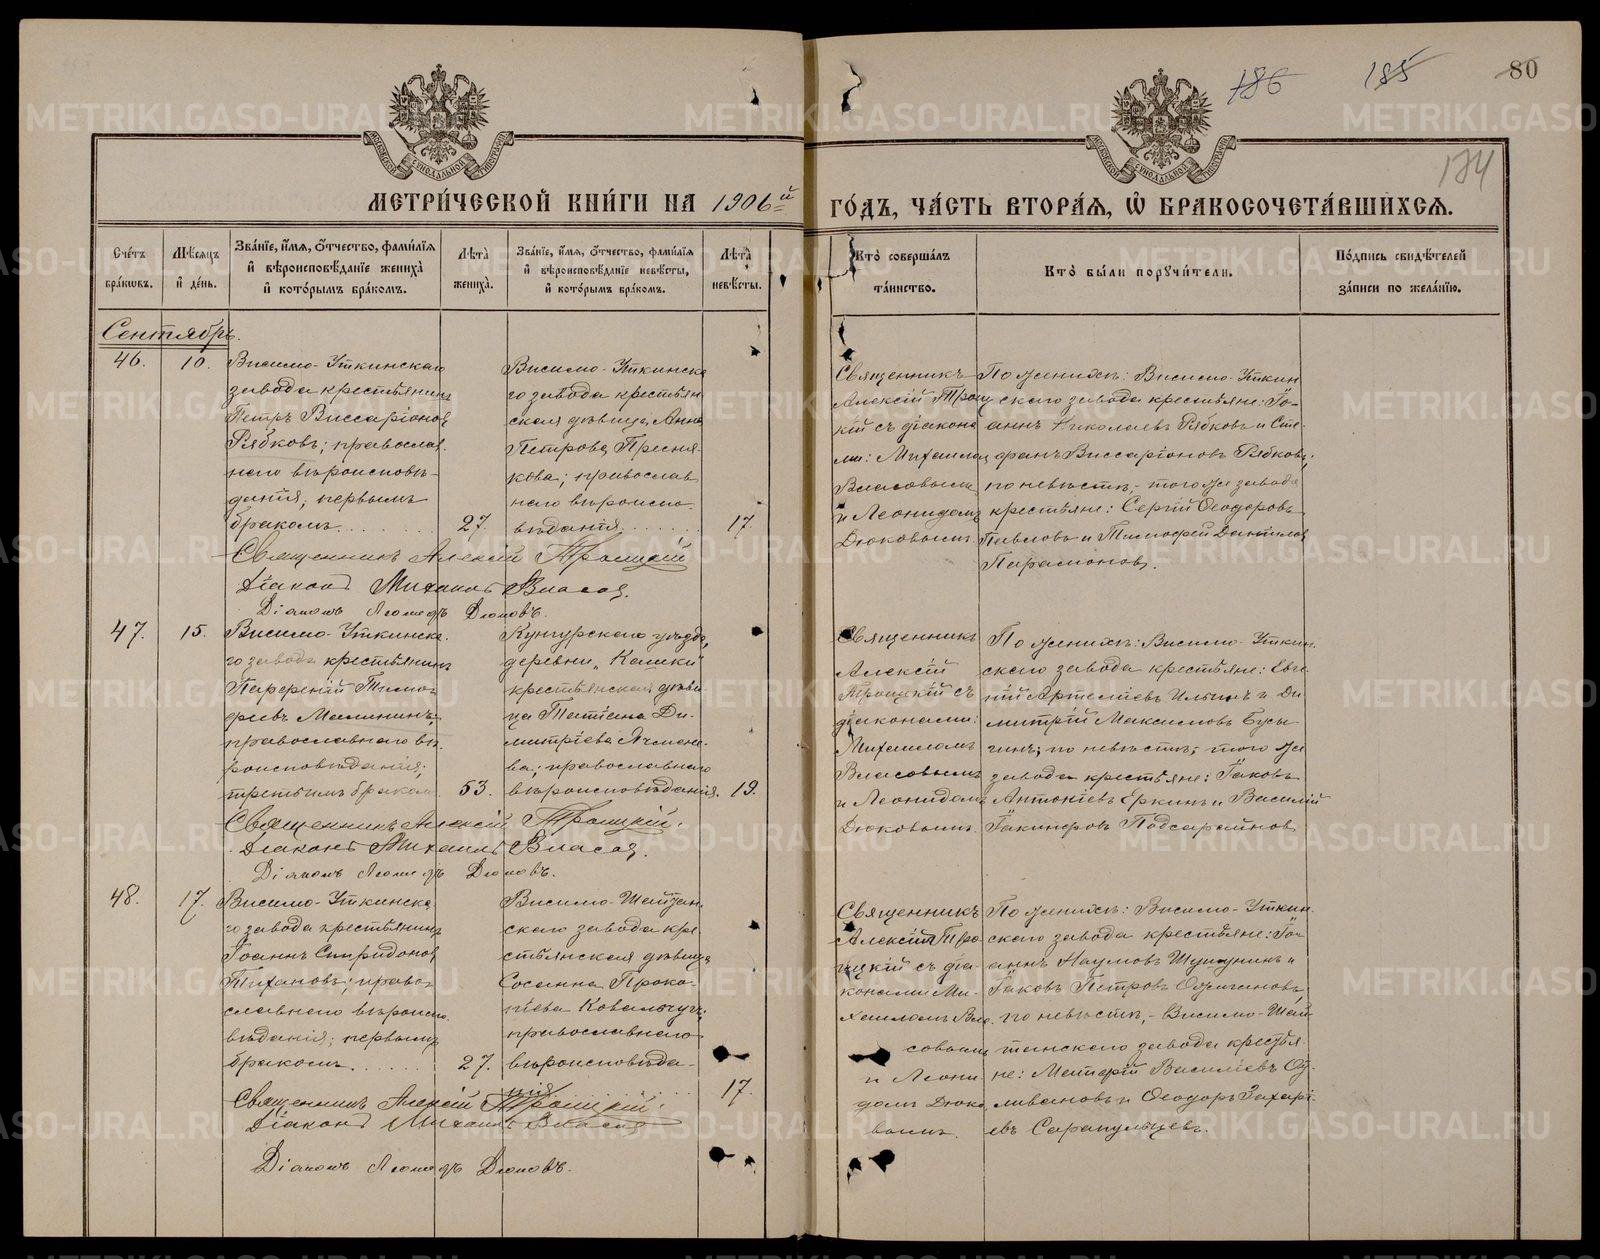 186
185
80
174
МЕТРИ́ЧЕСКОЙ КНИ́ГИ НА 1906й ГО́ДЪ, ЧА́СТЬ ВТОРА́Я, Ѡ БРАКОСОЧЕТА́ВШИХСЯ.
Сче́тъ бра́кѡвъ.
Мѣ́сяцъ и҆ де́нь.
Зва́нїе, и҆́мя, ѻ҆́тчество, фами́лїя
и҆ вѣроисповѣ́данїе жениха̀
и҆ кото́рымъ бра́комъ.
Лѣ́та жениха̀.
Зва́нїе, и҆́мя, ѻ҆́тчество, фами́лїя
и҆ вѣроисповѣ́данїе невѣ́сты,
и҆ кото́рымъ бра́комъ.
Лѣ́та невѣ́сты.
Кто̀ соверша́лъ
та́инство.
Кто̀ бы́ли порꙋчи́тели.
По́дпись свидѣ́телей
за́писи по жела́нїю.
Сентябрь.
46.
10.
Висимо-Уткинскаго
завода крестьянинъ
Петръ Виссаріоновъ
Рябковъ; православ
наго вѣроисповѣ-
данія, первымъ
бракомъ
27.
Висимо-Уткинска
го завода крестьян
ская дѣвица Анна
Петрова
кова; православ
наго вѣроиспо-
вѣданія
17.
Священникъ
Алексій Троиц
кій съ діакона
ми: Михаиломъ
Власовымъ
и Леонидомъ
Дюковымъ.
По женихѣ: Висимо-Уткин
скаго завода крестьяне: Іо-
аннъ Николаевъ Рябковъ и Сте
фанъ Виссаріоновъ Рябковъ;
по невѣстѣ,- того же завода
крестьяне: Сергій Ѳеодоровъ
Павловъ и Тимофей Даниловъ
Парамоновъ.
Священникъ Алексій Троицкій
Діаконъ Михаилъ Власовъ.
Діаконъ Леонидъ Дюковъ.
47.
15.
Висимо-Уткинска-
го завода крестьянинъ
Парфеній Тимо-
феевъ Малининъ,
православнаго вѣ-
роисповѣданія;
третьимъ бракомъ
53.
Кунгурскаго уѣзда,
деревни
крестьянская дѣви-
ца Татіана Ди-
митріева
ва; православнаго
вѣроисповѣданія.
19.
Священникъ
Алексій
Троицкій съ
діаконами:
Михаиломъ
Власовымъ
и Леонидомъ
Дюковымъ.
По женихѣ: Висимо-Уткин-
скаго завода крестьяне: Евге-
ній Ильинъ и Ди
митрій Максимовъ Бусы
гинъ; по невѣстѣ; того же
завода крестьяне: Іаковъ
Антоніевъ Еркинъ и Василій
Іакинѳовъ Подсарайновъ
Священникъ Алексій Троицкій.
Діаконъ Михаилъ Власовъ.
Діаконъ Леонидъ Дюковъ.
48.
17.
Висимо-Уткинска
го завода крестьянинъ
Іоаннъ Спиридоновъ
Тихановъ; право-
славнаго вѣроиспо-
вѣданія; первымъ
бракомъ
27.
Висимо-Шайтан
скаго завода кре
стьянская дѣвица
Сосанна Проко-
піева Ковальчугъ;
православнаго
вѣроисповѣда-
нія
17.
Священникъ
Алексій Тро
ицкій съ діа-
конами Ми-
хаиломъ Вла
совымъ
и Леони
домъ Дюко
вымъ.
По женихѣ: Висимо-Уткин
скаго завода крестьяне: Іо-
аннъ Наумовъ и
Іаковъ Петровъ Ожигановъ,
по невѣстѣ,- Висимо-Шай
танскаго завода крестья
не: Василіевъ Се-
ливановъ и Ѳеодоръ Захарі-
евъ Сарапульцевъ.
Священникъ Алексій Троицкій.
Діаконъ Михаилъ Власовъ
Діаконъ Леонидъ Дюковъ.
METRIKI.GASO-URAL.RU